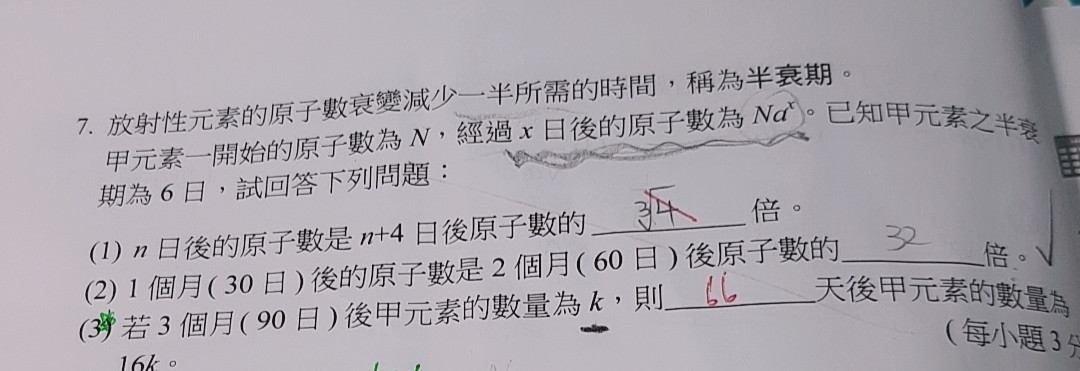 7. 放射性元素的原子數衰變減少一半所需的時間，稱為半衰期。
甲元素一開始的原子數為 N，經過 x 日後的原子數為 Naˣ。已知甲元素之半衰
期為 6 日，試回答下列問題：
(1) n 日後的原子數是 n+4 日後原子數的 ∛4 倍。
(2) 1 個月( 30 日 ) 後的原子數是 2 個月( 60 日 ) 後原子數的 32 倍。
(3) 若 3 個月( 90 日 ) 後甲元素的數量為 k，則 66 天後甲元素的數量為
16k。
( 每小題 3 分